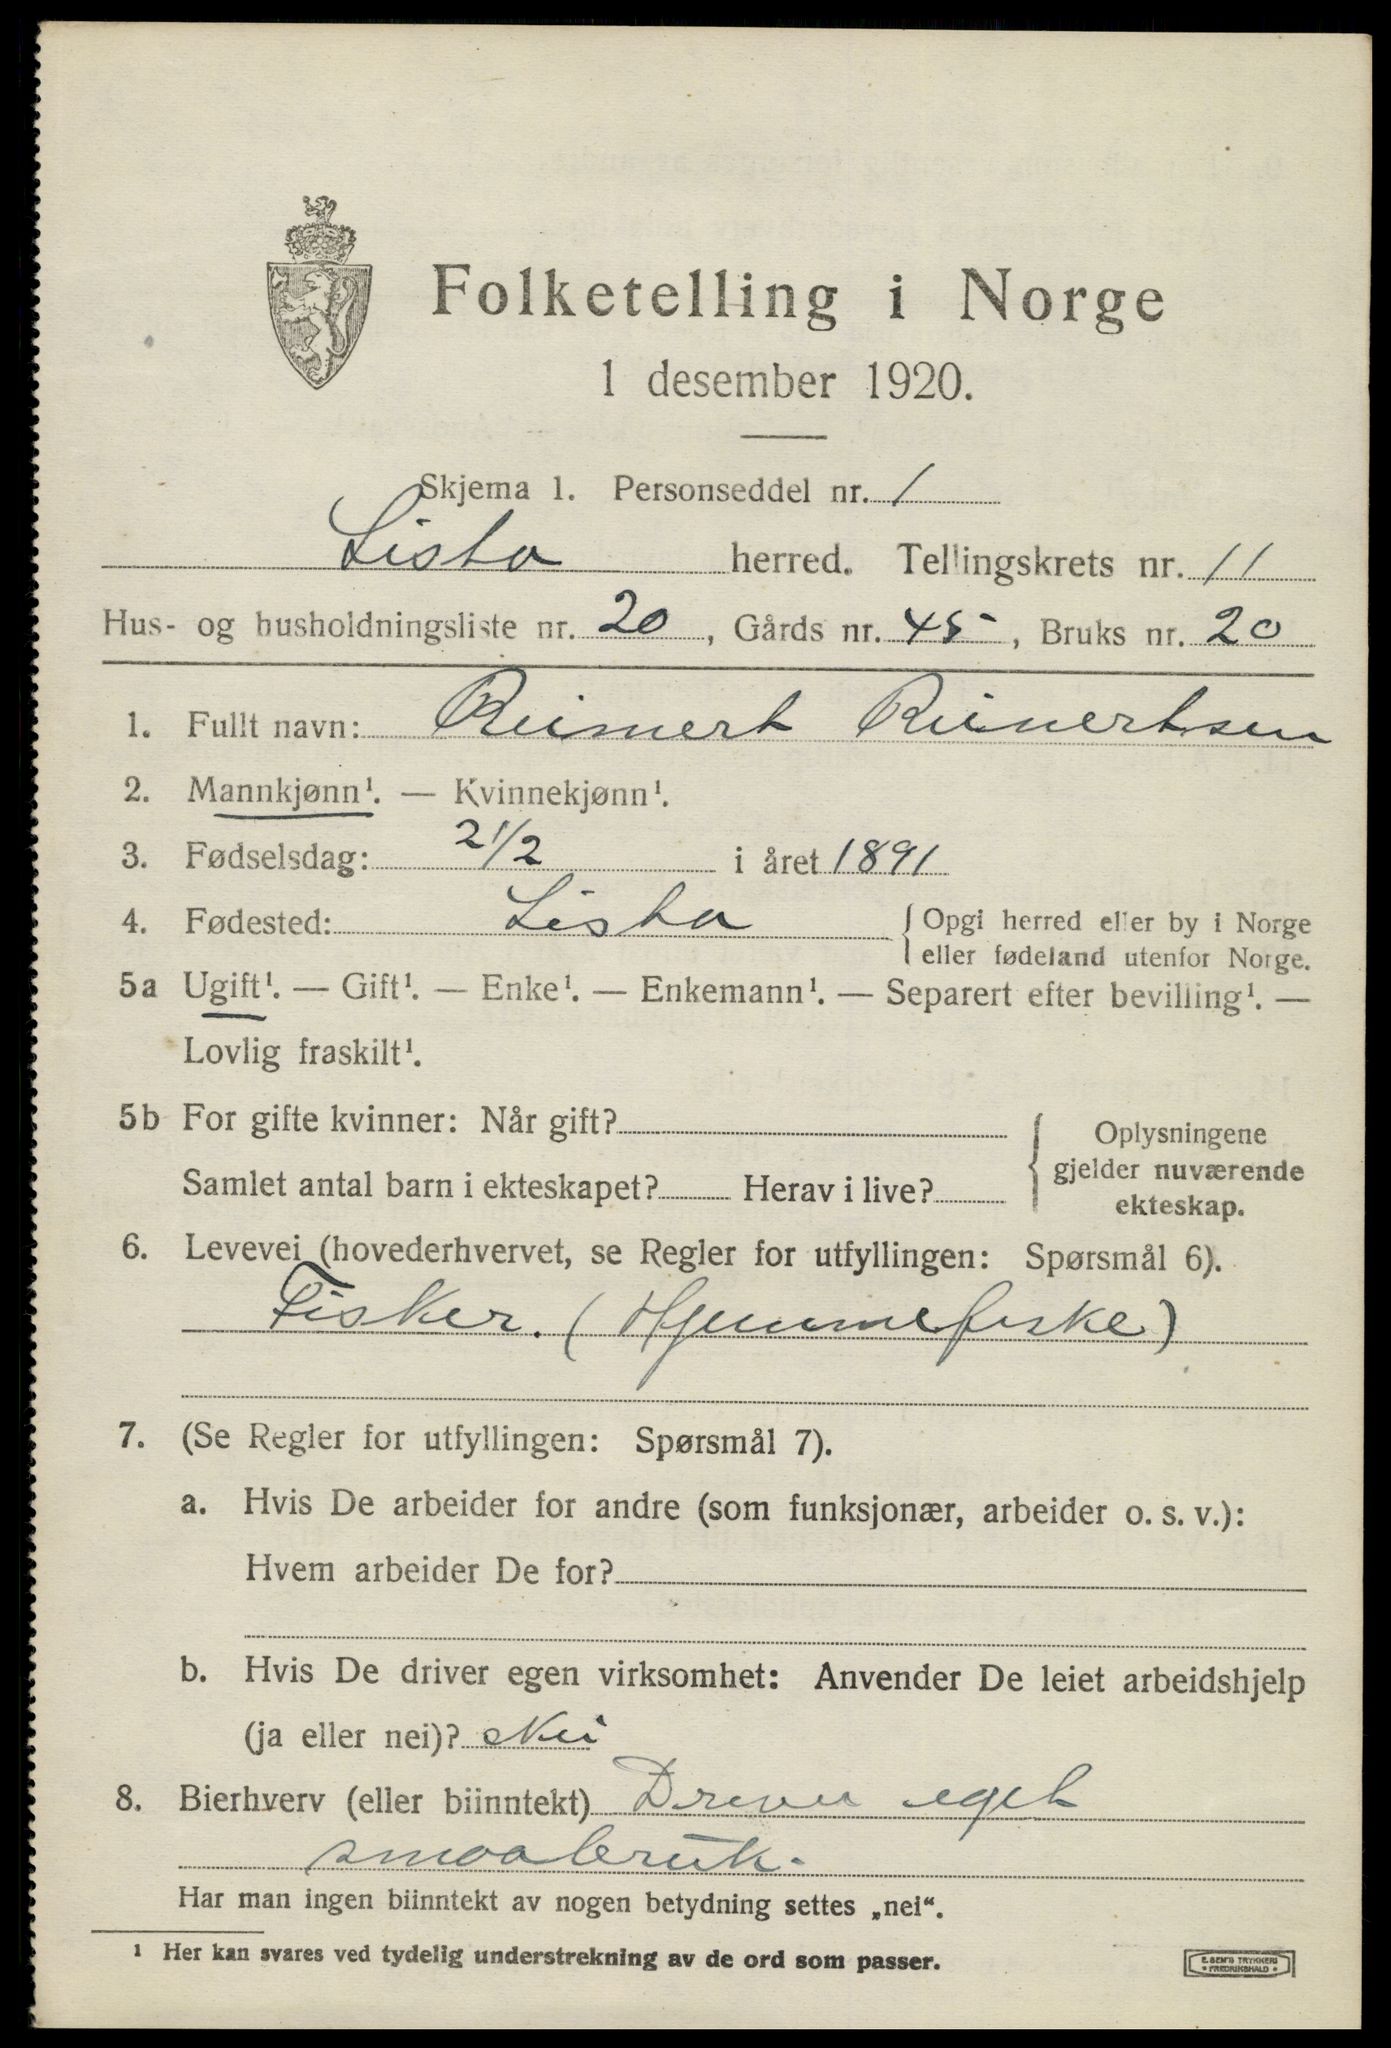 Folketelling i Norge
1 desember 1920.
Skjema 1. Personseddel nr. 1
Lista herred. Tellingskrets nr. 11
Hus- og husholdningsliste nr. 20, Gårds nr. 45, Bruks nr. 20
1. Fullt navn: Reinert Reinertsen
2. Mannkjønn¹. — Kvinnekjønn¹.
3. Fødselsdag: 21/2 i året 1891
4. Fødested: Lista { Opgi herred eller by i Norge
eller fødeland utenfor Norge.
5a Ugift¹. — Gift¹. — Enke¹. — Enkemann¹. — Separert efter bevilling¹. —
Lovlig fraskilt¹.
5b For gifte kvinner: Når gift? { Oplysningene
gjelder nuværende
ekteskap.
Samlet antal barn i ekteskapet? Herav i live?
6. Levevei (hovederhvervet, se Regler for utfyllingen: Spørsmål 6).
Fisker. (Hjemmefiske)
7. (Se Regler for utfyllingen: Spørsmål 7).
a. Hvis De arbeider for andre (som funksjonær, arbeider o. s. v.):
Hvem arbeider De for?
b. Hvis De driver egen virksomhet: Anvender De leiet arbeidshjelp
(ja eller nei)? Nei
8. Bierhverv (eller biinntekt) Driver eget
smaabruk.
Har man ingen biinntekt av nogen betydning settes „nei“.
¹ Her kan svares ved tydelig understrekning av de ord som passer.
E. SEM'S TRYKKERI
• FREDRIKSHALD •